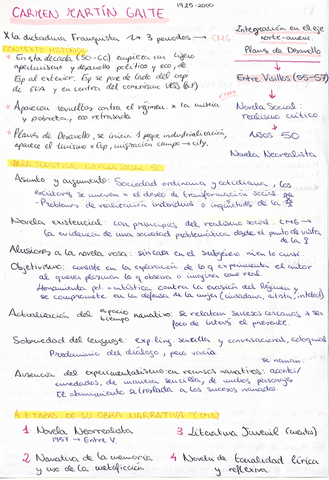 CARMEN MARTÍN GAITE 1925-2000
X la dictadura Franquista 3 periodos → CMG
Integración en el eje
norte-ameri.
Planes de Desarrollo
CONTEXTO HISTÓRICO
* En esta década (50-60) empieza un ligero
aperturismo y desarrollo político y eco, de
Esp al exterior. Esp se pone de lado del capi
de EUA y en contra del comunismo
Entre Visillos (55-57)
* Aparecen revueltas contra el régimen x la miseria
y pobreza, eco retrasada
Novela Social:
realismo crítico
* Planes de Desarrollo, se inicia 1 peqe industrialización,
aparece el turismo x Esp, migración campo → city.
AÑOS 50
Novela Neorrealista
CARACTERÍSTICAS NOVELA SOCIAL 50
Asunto y argumento: Sociedad ordinaria y cotidiana, los
escritores se mueven x el deseo de transformación social
- Problemas de realización individuos o inquietudes de la
Novela existencial: con principios del realismo social. CMG →
la evidencia de una sociedad problemática desde el punto de vista
de la
Alusiones a la novela rosa: sin caer en el subgénero ni en lo cursi.
Objetivismo: consiste en la exploración de la q experimenta el autor
al querer plasmar lo q observa o imagina como real.
Herramienta contra la evasión del Régimen y
se compromete en la defensa de la mujer (ciudadana, artista, intelect)
Actualización del espacio
tiempo narrativo: se relatan sucesos cercanos a ser
foco de interés el presente.
Sobriedad del lenguaje: exp ling. sencilla y conversacional, coloquial
Predominio del diálogo, pero vacía
se narran
Ausencia del experimentalismo en recursos narrativos: aconteci/
enredados, de manera sencilla, de muchos personajes
El aburrimiento se traslada a los sucesos narrados.
4 ETAPAS DE SU OBRA NARRATIVA (CMG)
1 Novela Neorrealista
1957 → Entre V.
3 Literatura Juvenil (cuentos)
2 Narrativa de la memoria
y uso de la metaficción
4 Novela de tonalidad lírica
y reflexiva